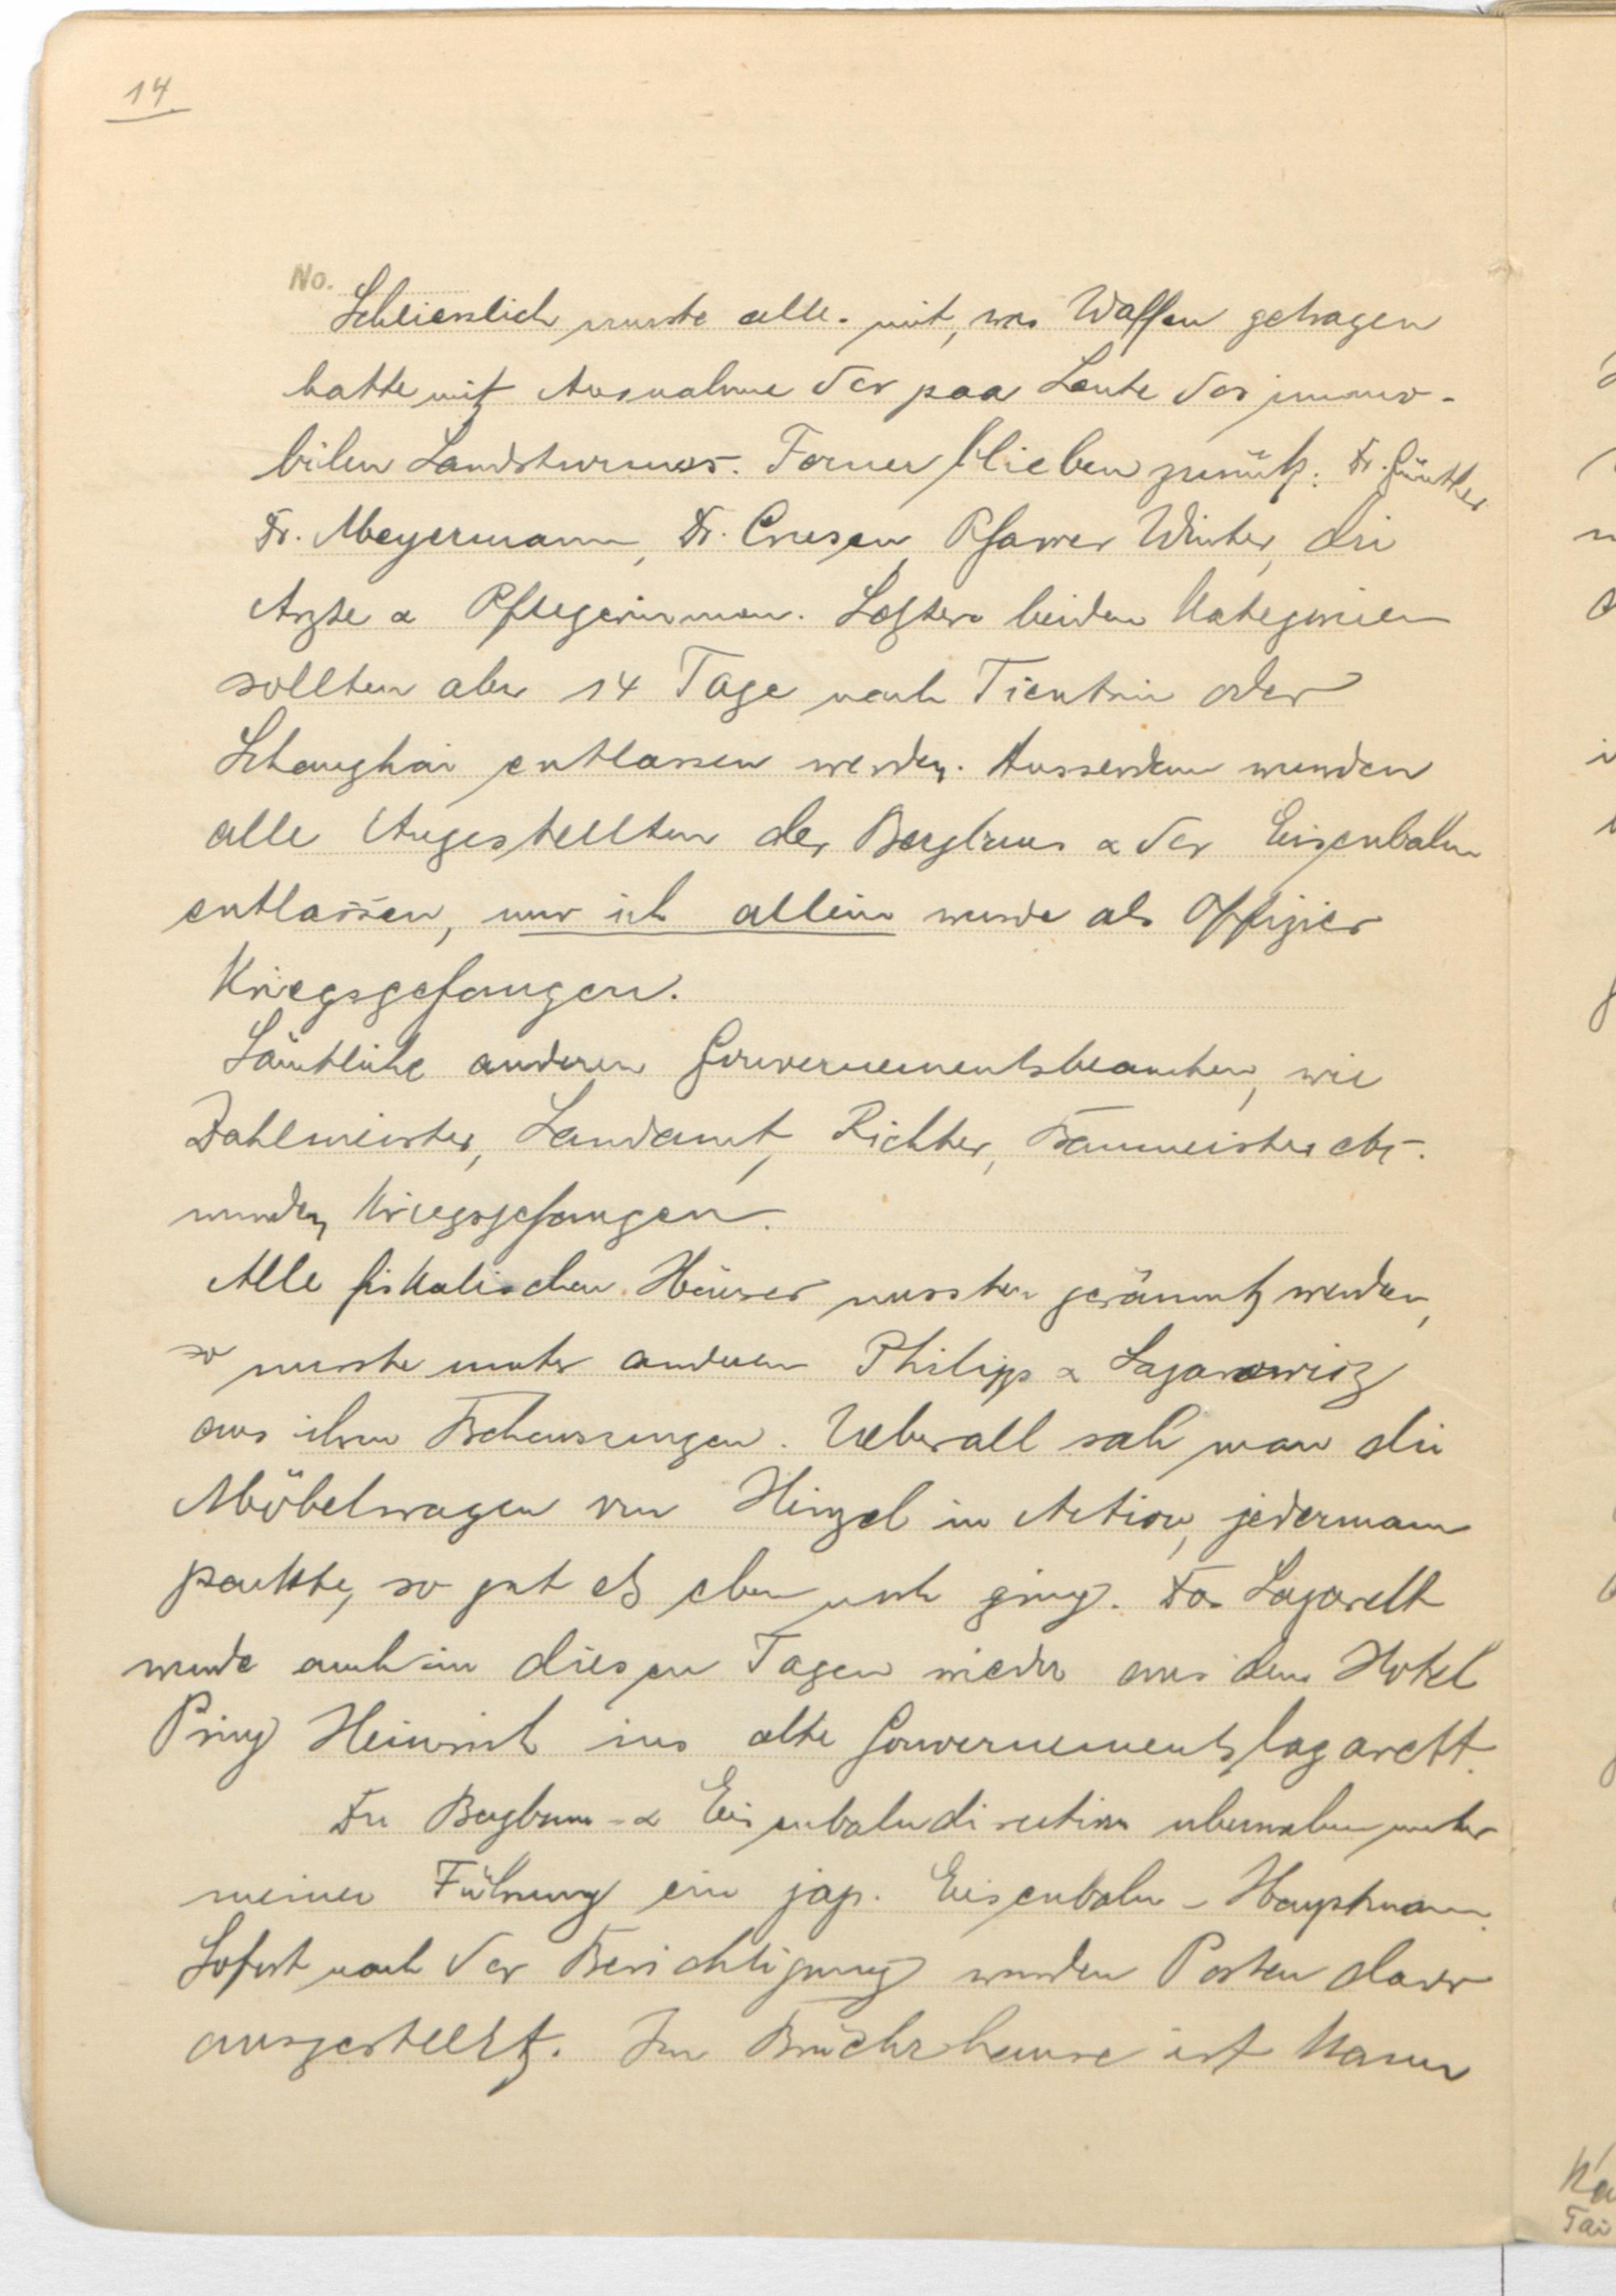 14
No.
Schliesslich musste alles mit, was Waffen getragen
hatte mit Ausnahme der paar Leute des immo-
bilen Landsturmes. Ferner blieben zurück: Dr. Günther
Dr. Meyermann, Dr. Crusen, Pfarrer Winter, die
Ärzte & Pflegerinnen. Letztere beiden Kategorien
sollten aber 14 Tage nach Tientsin oder
Schanghai entlassen werden. Ausserdem wurden
alle Angestellten des Bergbaus & der Eisenbahn
entlassen, nur ich allein wurde als Offizier
Kriegsgefangen.
Sämtliche anderen Gouvernementsbeamten, wie
Zahlmeister, Landamt, Richter, Baumeister etc.
wurden Kriegsgefangen.
Alle fiskalischen Häuser mussten geräumt werden,
so musste unter anderen Philipps & Lazarowicz
aus ihren Behausungen. Ueberall sah man die
Möbelwagen von Hinzel in Action, jedermann
packte, so gut es eben noch ging. Das Lazarett
wurde auch in diesen Tagen wieder aus dem Hotel
Prinz Heinrich ins alte Gouvernementslazarett.
Die Bergbau- & Eisenbahndirection übernahm unter
meiner Führung ein jap. Eisenbahn-Hauptmann.
Sofort nach der Besichtigung wurden Posten davor
ausgestellt. Im hause ist kaum
Ka
Tai